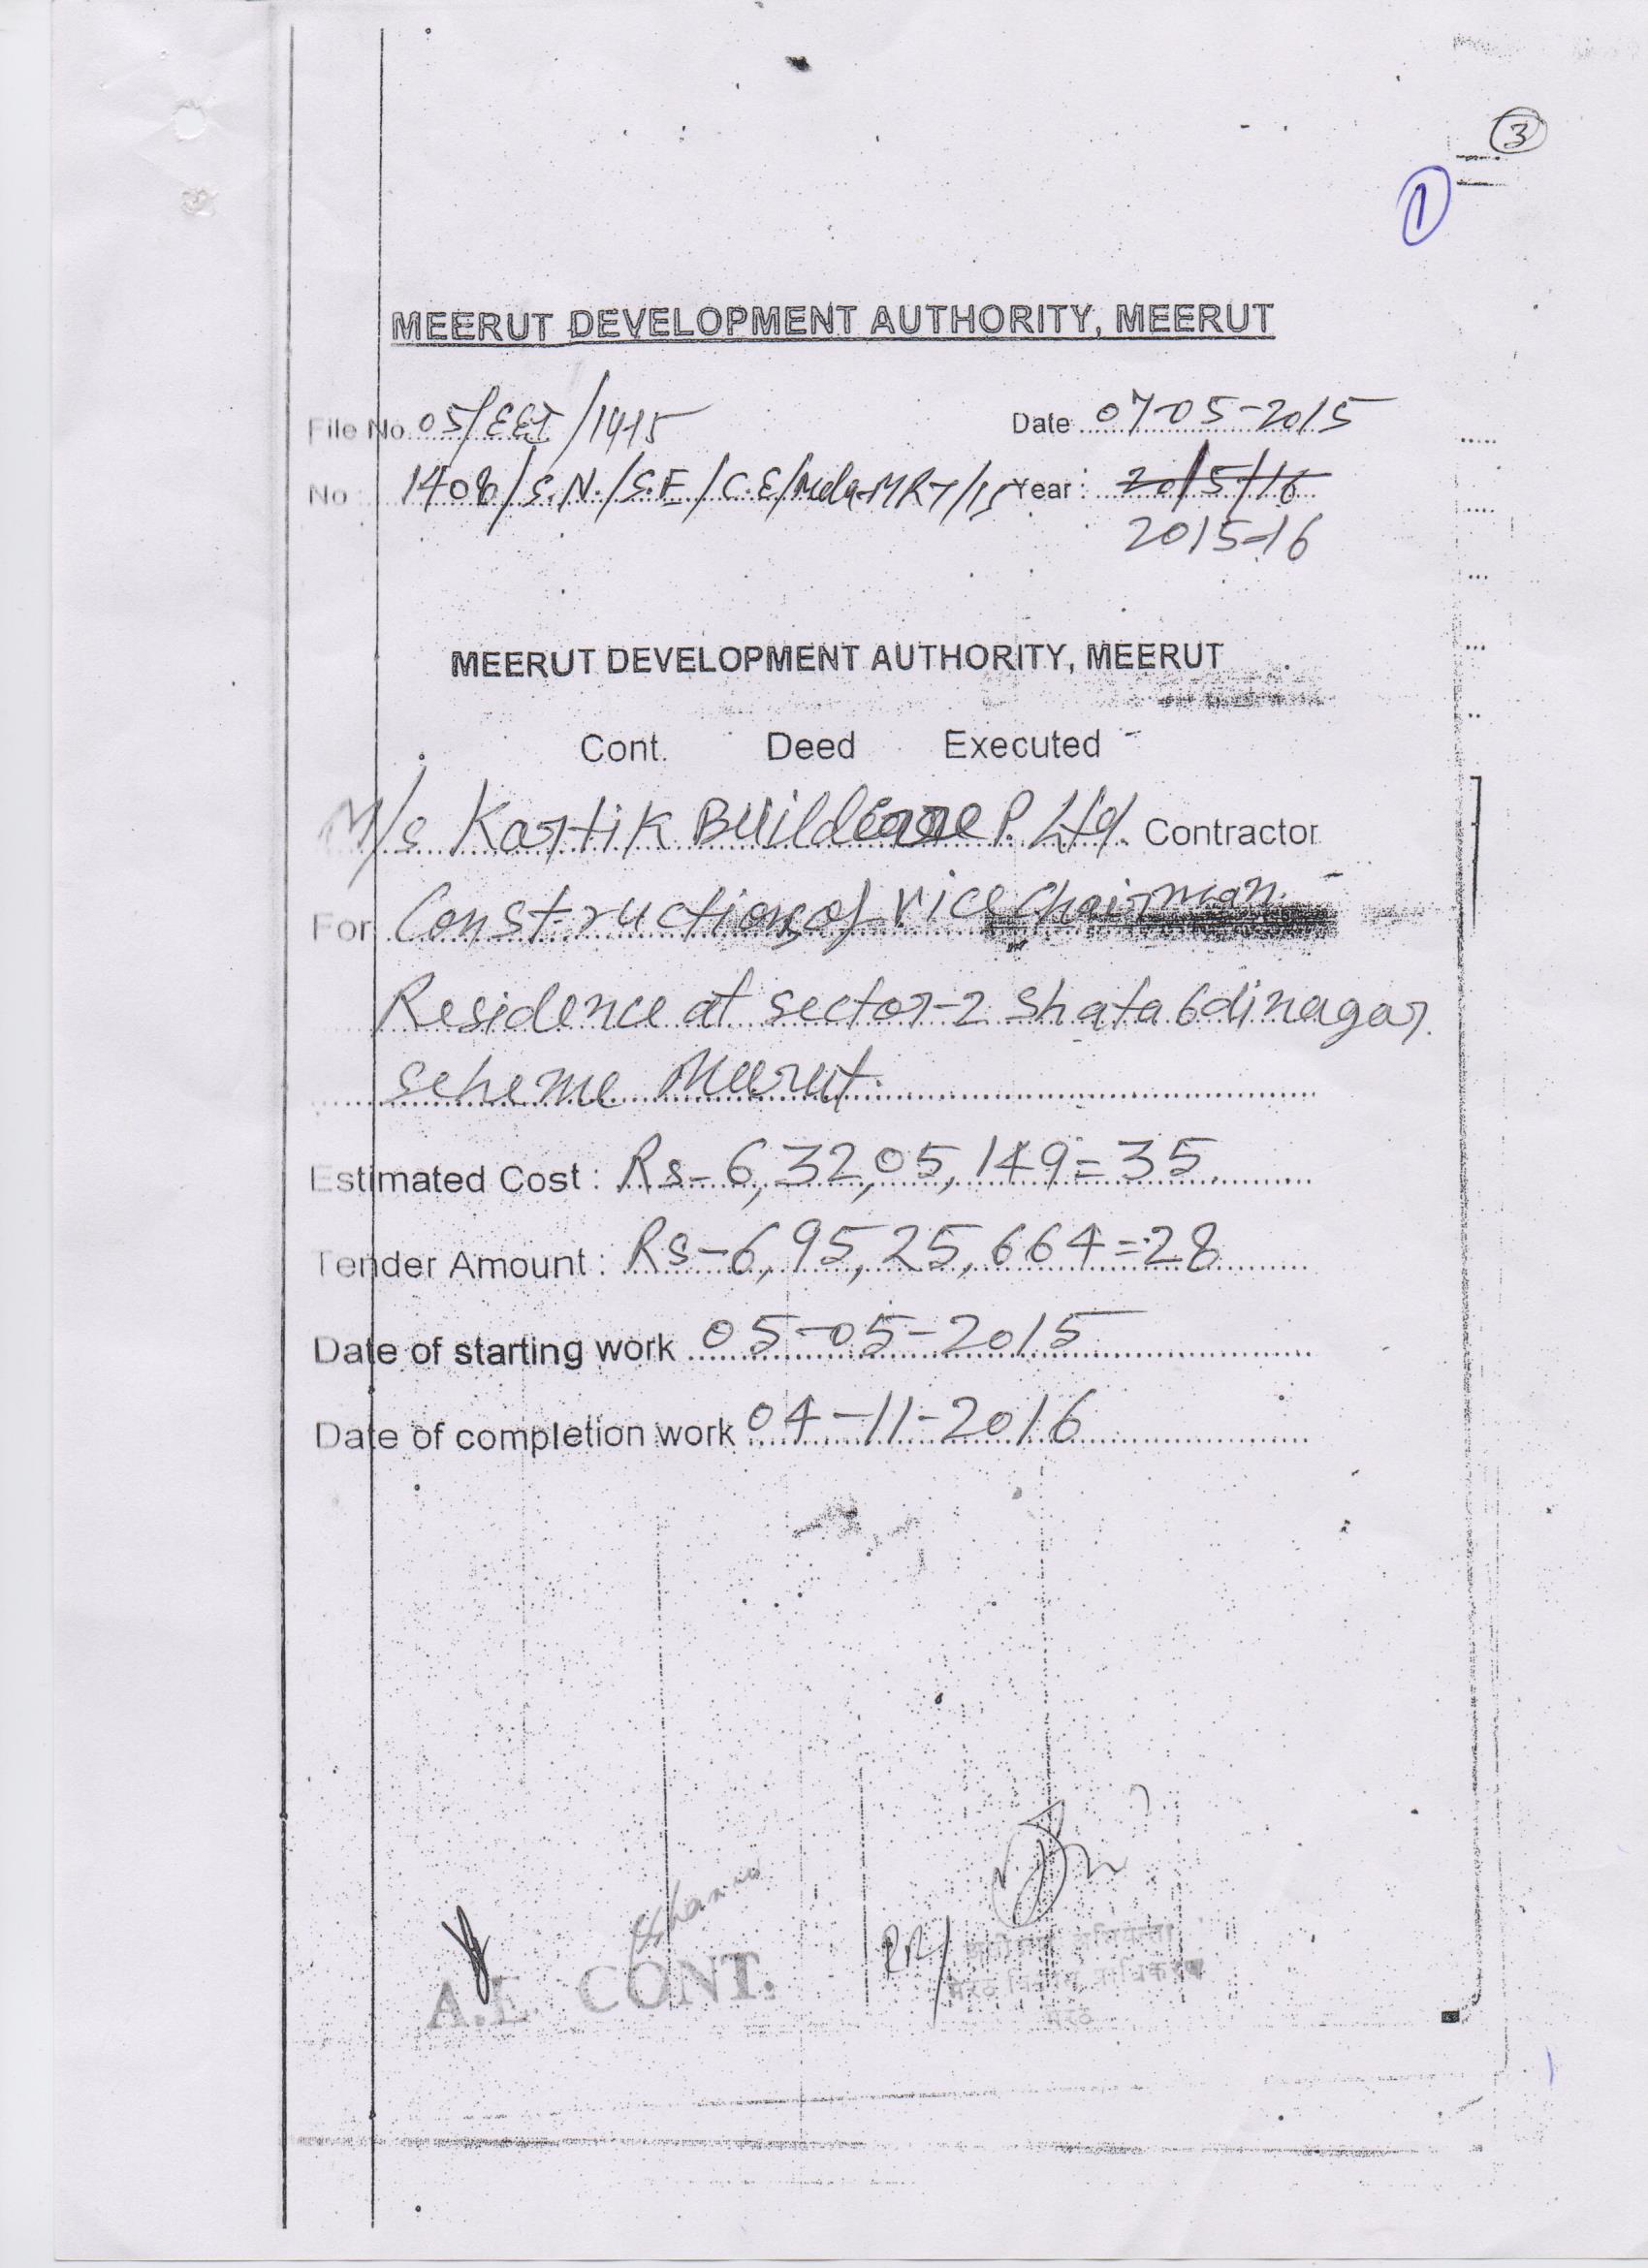 3
1
MEERUT DEVELOPMENT AUTHORITY, MEERUT
File No. 05/EET/1415 Date 07-05-2015
No : 1408/S.N./S.E/C.E/Mda-MRT/15 Year : 2015/16
2015-16
MEERUT DEVELOPMENT AUTHORITY, MEERUT
Cont. Deed Executed
M/s Kartik P. Ltd. Contractor
For Construction of Vice Chairman
Residence at sector-2 Shatabdinagar
scheme Meerut.
Estimated Cost : Rs-6,32,05,149=35
Tender Amount : Rs-6,95,25,664=28
Date of starting work 05-05-2015
Date of completion work 04-11-2016
A.E. CONT.
मेरठ विकास प्राधिकरण
मेरठ